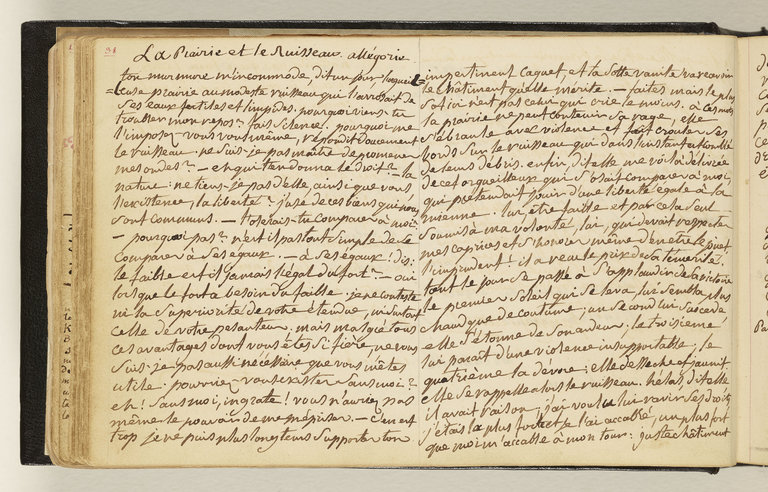 31
La Prairie et le Ruisseau. allégorie
ton murmure m'incommode, dit un jour l'orgueil=
=leuse prairie au modeste ruisseau qui l'arrosait de
ses eaux fertiles et limpides. pourquoi viens-tu
troubler mon repos? fais silence. pourquoi me
l'imposez-vous vous même, répondit doucement
le ruisseau. ne suis-je pas maître de promener
mes ondes? — et qui t'en donna le droit? — la
nature. ne tiens-je pas d'elle, ainsi que vous
l'existence, la liberté? j'use de ces biens qui nous
sont communs. — oserais-tu comparer à moi?
— pourquoi pas? n'est-il pas tout simple de se
comparer à ses égaux. — à ses égaux! dis:
le faible est-il jamais l'égal du fort? — oui
lorsque le fort a besoin du faible. je ne conteste
ni la supériorité de votre étendue, ni surtout
celle de votre pesanteur. mais malgré tous
ces avantages dont vous êtes si fière, ne vous
suis-je pas aussi nécessaire que vous m'êtes
utile. pourriez-vous exister sans moi?
eh! sans moi, ingrate! vous n'auriez pas
même le pouvoir de me mépriser. — c'en est
trop je ne puis plus longtems supporter ton
impertinent caquet, et ta sotte vanité va recevoir
le châtiment qu'elle mérite. — faites mais le plus
sot ici n'est pas celui qui crie le moins. à ces mots
la prairie ne peut contenir sa rage, elle
s'ébranle avec violence et fait crouler ses
bords sur le ruisseau qui dans l'instant est comblé
de leurs débris. enfin, dit elle me voilà délivrée
de cet orgueilleux qui s'osait comparer à moi,
qui prétendait jouir d'une liberté égale à la
mienne. lui, être faible et par cela seul
soumis à ma volonté, lui, qui devait respecter
mes caprices et s'honorer même d'en être le jouet
l'imprudent! il a reçu le prix de sa témérité.
tout le jour se passe à s'applaudir de sa victoire
le premier soleil qui se leva lui sembla plus
chaud que de coutume; un second lui succède
elle s'étonne de son ardeur; le troisième
lui paraît d'une violence insupportable; le
quatrième la dévore; elle dessèche et jaunit.
elle se rappelle alors le ruisseau. hélas, dit elle
il avait raison; j'ai voulu lui ravir ses droits
j'étais la plus forte et je l'ai accablé, un plus fort
que moi m'accable à mon tour: juste châtiment